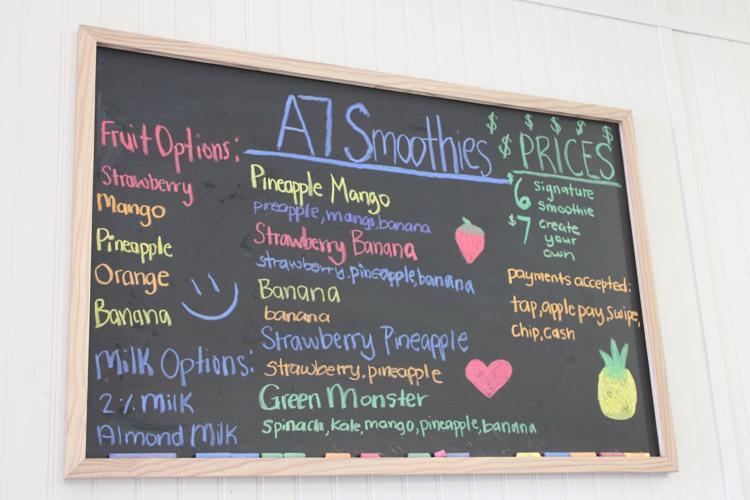 A7 Smoothies
Fruit Options:
Strawberry
Mango
Pineapple
Orange
Banana
Milk Options:
2% Milk
Almond Milk
Pineapple Mango
pineapple, mango, banana
Strawberry Banana
strawberry, pineapple, banana
Banana
banana
Strawberry Pineapple
strawberry, pineapple
Green Monster
spinach, kale, mango, pineapple, banana
$ $ $ $ $
$ PRICES
$6 signature
smoothie
$7 create
your
own
payments accepted:
tap, apple pay, swipe,
chip, cash